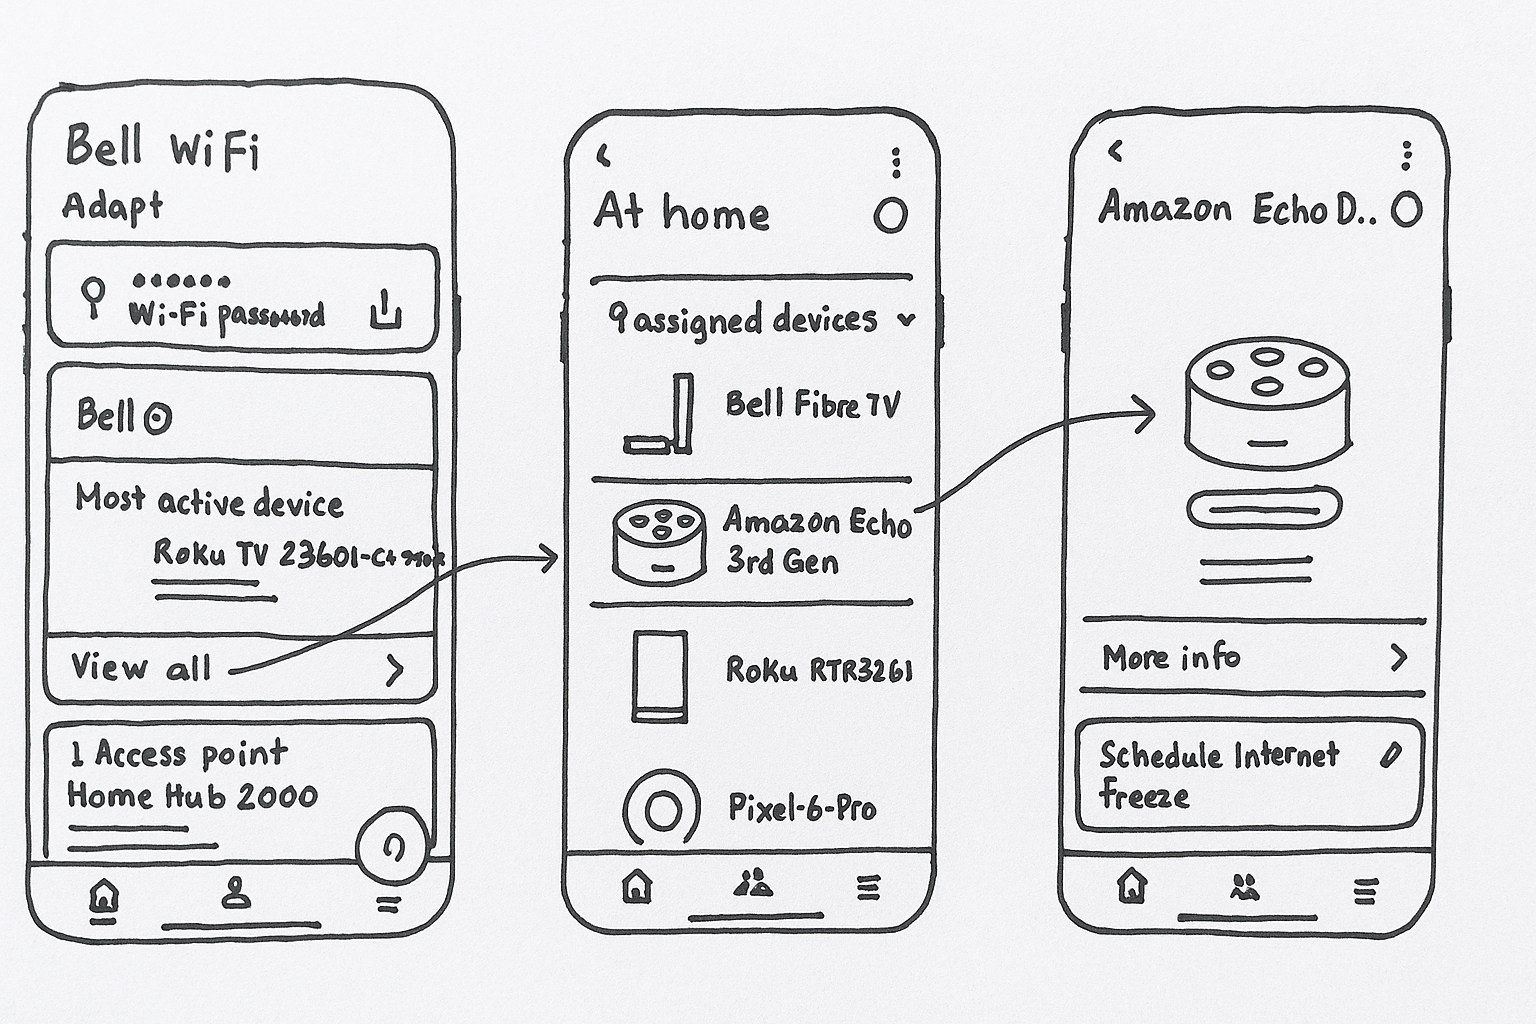 Bell WiFi
Adapt
Wi-Fi password
Bell
Most active device
Roku TV 23601-C
View all
1 Access point
Home Hub 2000
At home
9 assigned devices
Bell Fibre TV
Amazon Echo
3rd Gen
Roku RTR3261
Pixel-6-Pro
Amazon Echo D..
More info
Schedule Internet
freeze